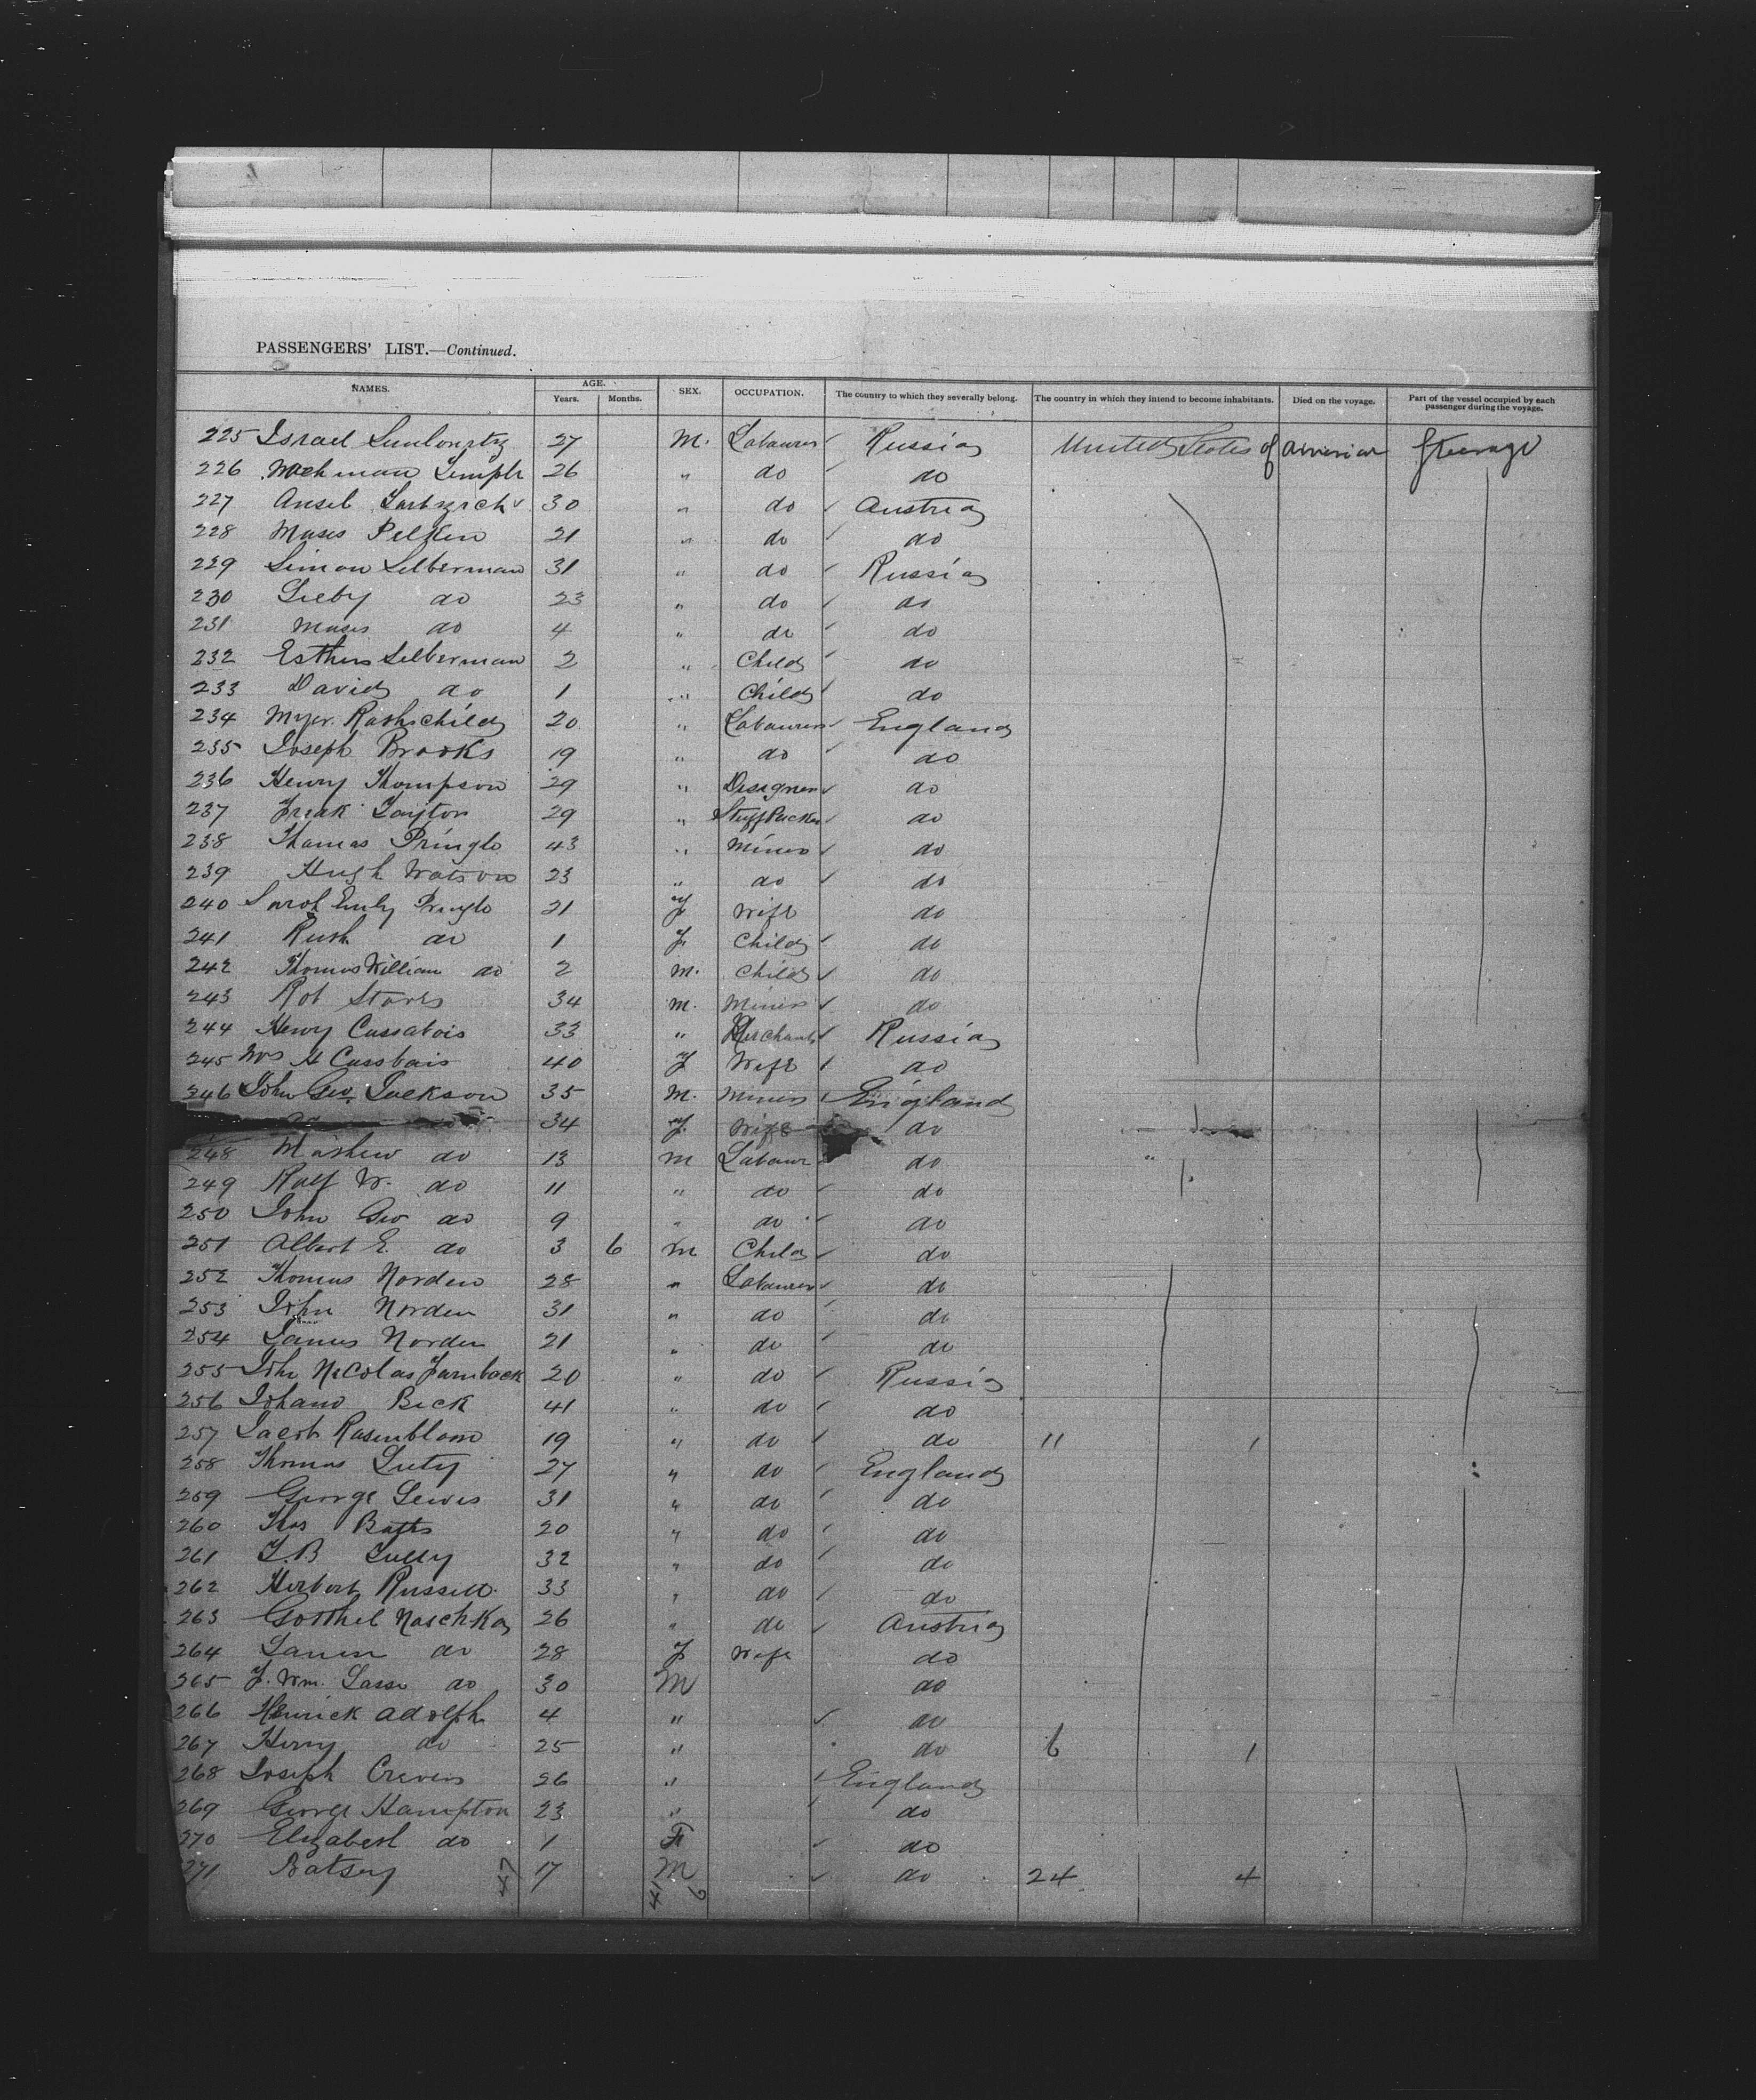 PASSENGERS' LIST.—Continued.
NAMES. AGE. Years. Months. SEX. OCCUPATION. The country to which they severally belong. The country in which they intend to become inhabitants. Died on the voyage. Part of the vessel occupied by each passenger during the voyage.
225 Israel 27 M. Labourer Russia United States of America Steerage
226 26 " do do
227 Ansel 30 " do Austria
228 Moses Pelken 21 " do do
229 Simon Silberman 31 " do Russia
230 do 23 " do do
231 Moses do 4 " do do
232 Esther Silberman 2 " Child do
233 David do 1 " Child do
234 Myer Rothschild 20 " Labourer England
235 Joseph Brooks 19 " do do
236 Henry Thompson 29 " Designer do
237 29 " do
238 Thomas Pringle 43 " Miner do
239 Hugh Watson 23 " do do
240 Sarah Emily Pringle 21 F Wife do
241 Ruth do 1 F. Child do
242 Thomas William do 2 M. Child do
243 Rob 34 M. Miner do
244 Henry 33 " Merchant Russia
245 Mrs H 40 F Wife do
246 John Geo. Jackson 35 M. Miner England
34 F. Wife do
248 Mathew do 13 M Labour do "
249 Ralf W. do 11 " do do
250 John Geo do 9 " do do
251 Albert E. do 3 6 M Child do
252 Thomas Norden 28 " Labourer do
253 John Norden 31 " do do
254 James Norden 21 " do do
255 John Nicolas 20 " do Russia
256 Johann Beck 41 " do do
257 Jacob Rosenblom 19 " do do 11 1
258 Thomas 27 " do England
259 George Lewis 31 " do do
260 Thos 20 " do do
261 32 " do do
262 Herbert Russell 33 " do do
263 Gotthel Naschka 26 " do Austria
264 do 28 F Wife do
265 Wm. do 30 M do
266 Heinrick Adolph 4 " do
267 Henry do 25 " do 6 1
268 Joseph Creven 26 " England
269 George Hampton 23 " do
270 Elizabeth do 1 F do
271 Batsey 17 M do 24 4
47 41 6